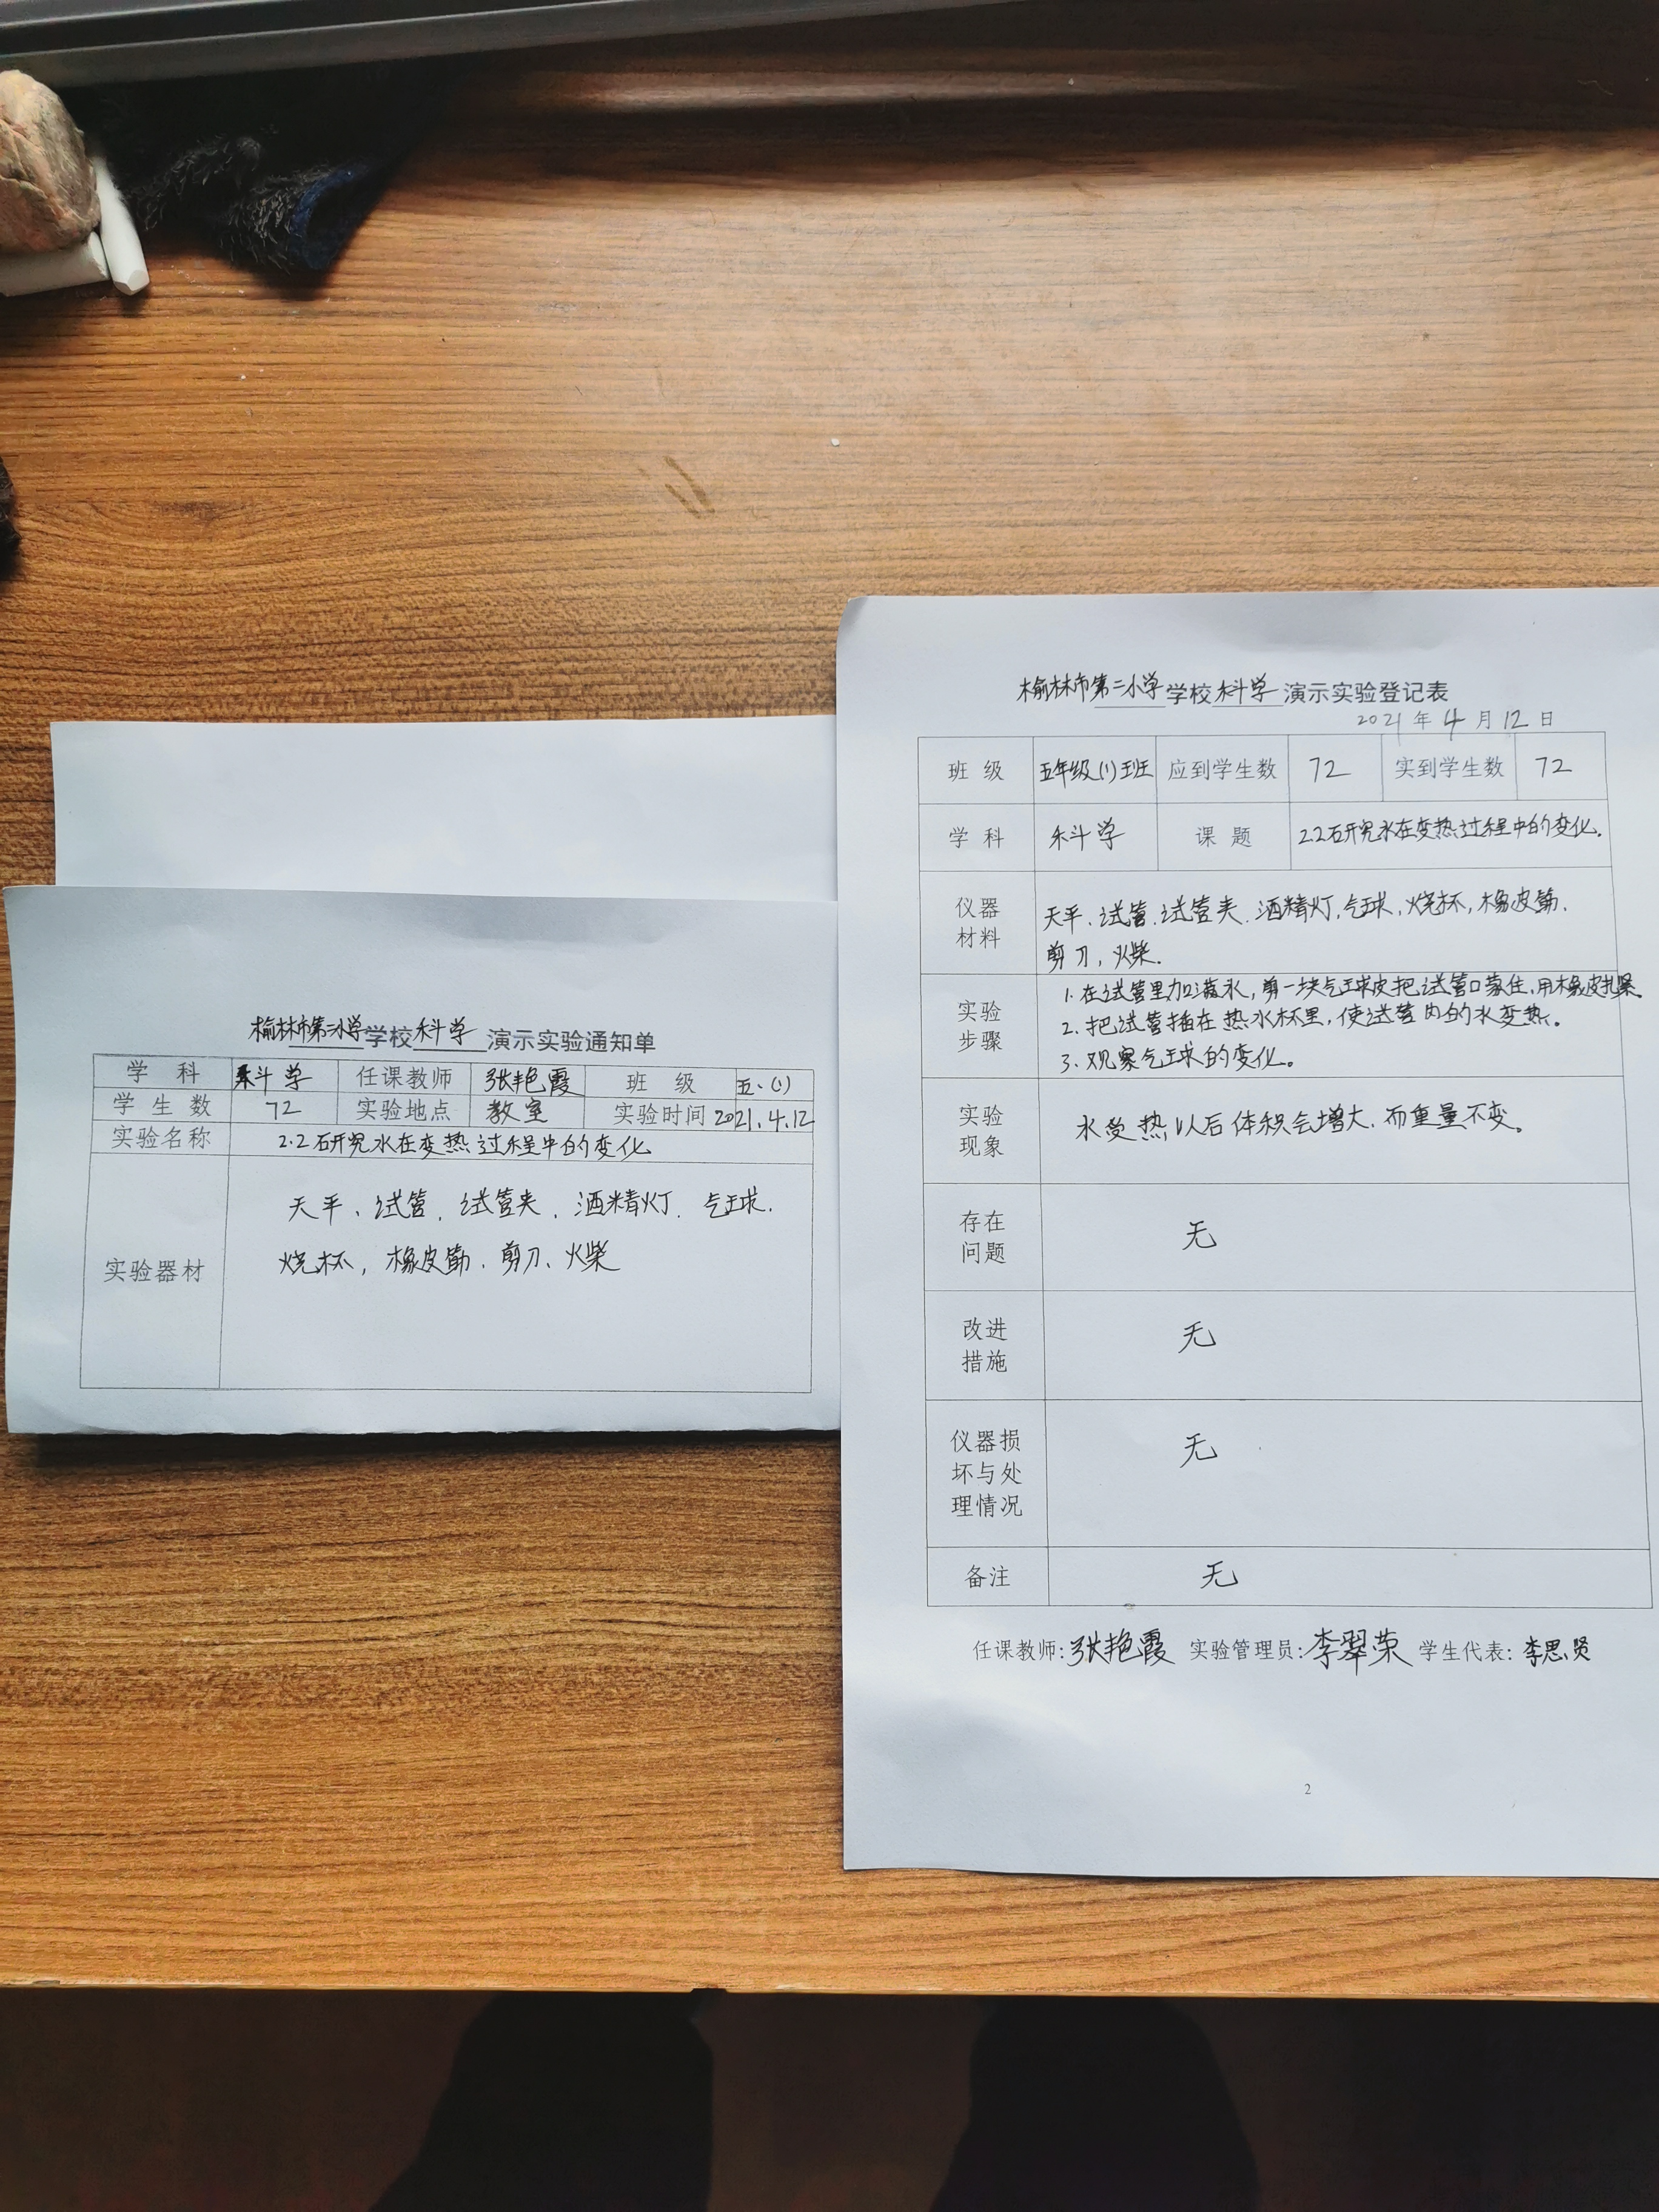 榆林市第二小学学校科学演示实验通知单
学 科 科学 任课教师 张艳霞 班 级 五.(1)
学 生 数 72 实验地点 教室 实验时间 2021.4.12
实验名称 2.2研究水在变热过程中的变化
实验器材
天平、试管、试管夹、酒精灯、气球、
烧杯,橡皮筋、剪刀、火柴
榆林市第二小学学校科学演示实验登记表
2021年4月12日
班 级 五年级(1)班 应到学生数 72 实到学生数 72
学 科 科学 课 题 2.2研究水在变热过程中的变化。
仪器
材料
天平、试管、试管夹、酒精灯,气球,烧杯,橡皮筋、
剪刀,火柴.
实验
步骤
1.在试管里加满水,剪一块气球皮把试管口蒙住,用橡皮扎紧。
2.把试管插在热水杯里,使试管内的水变热。
3.观察气球的变化。
实验
现象
水受热以后体积会增大,而重量不变。
存在
问题
无
改进
措施
无
仪器损
坏与处
理情况
无
备注 无
任课教师:张艳霞 实验管理员:李翠荣 学生代表:李思贤
2